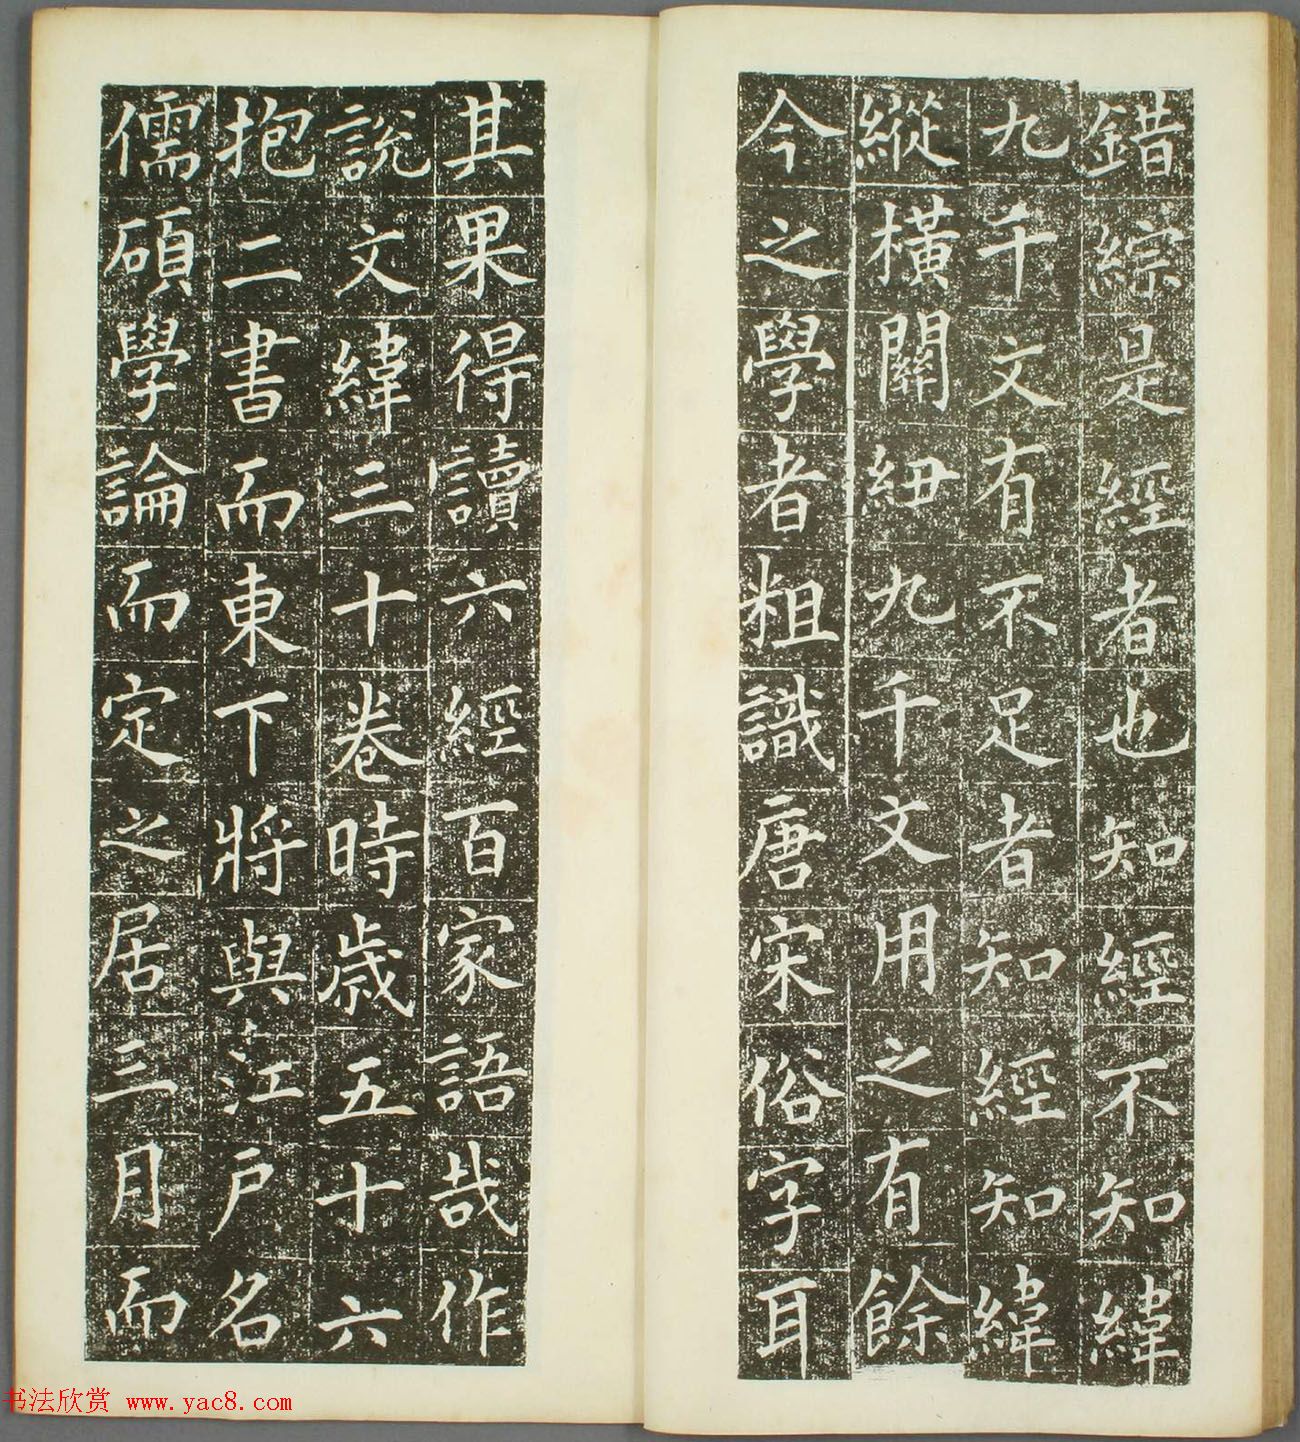 錯綜是經者也知經不知緯
九千文有不足者知經知緯
縱橫關紐九千文用之有餘
今之學者粗識唐宋俗字耳
其果得讀六經百家語哉作
說文緯三十卷時歲五十六
抱二書而東下將與江戶名
儒碩學論而定之居三月而
书法欣赏 www.yac8.com